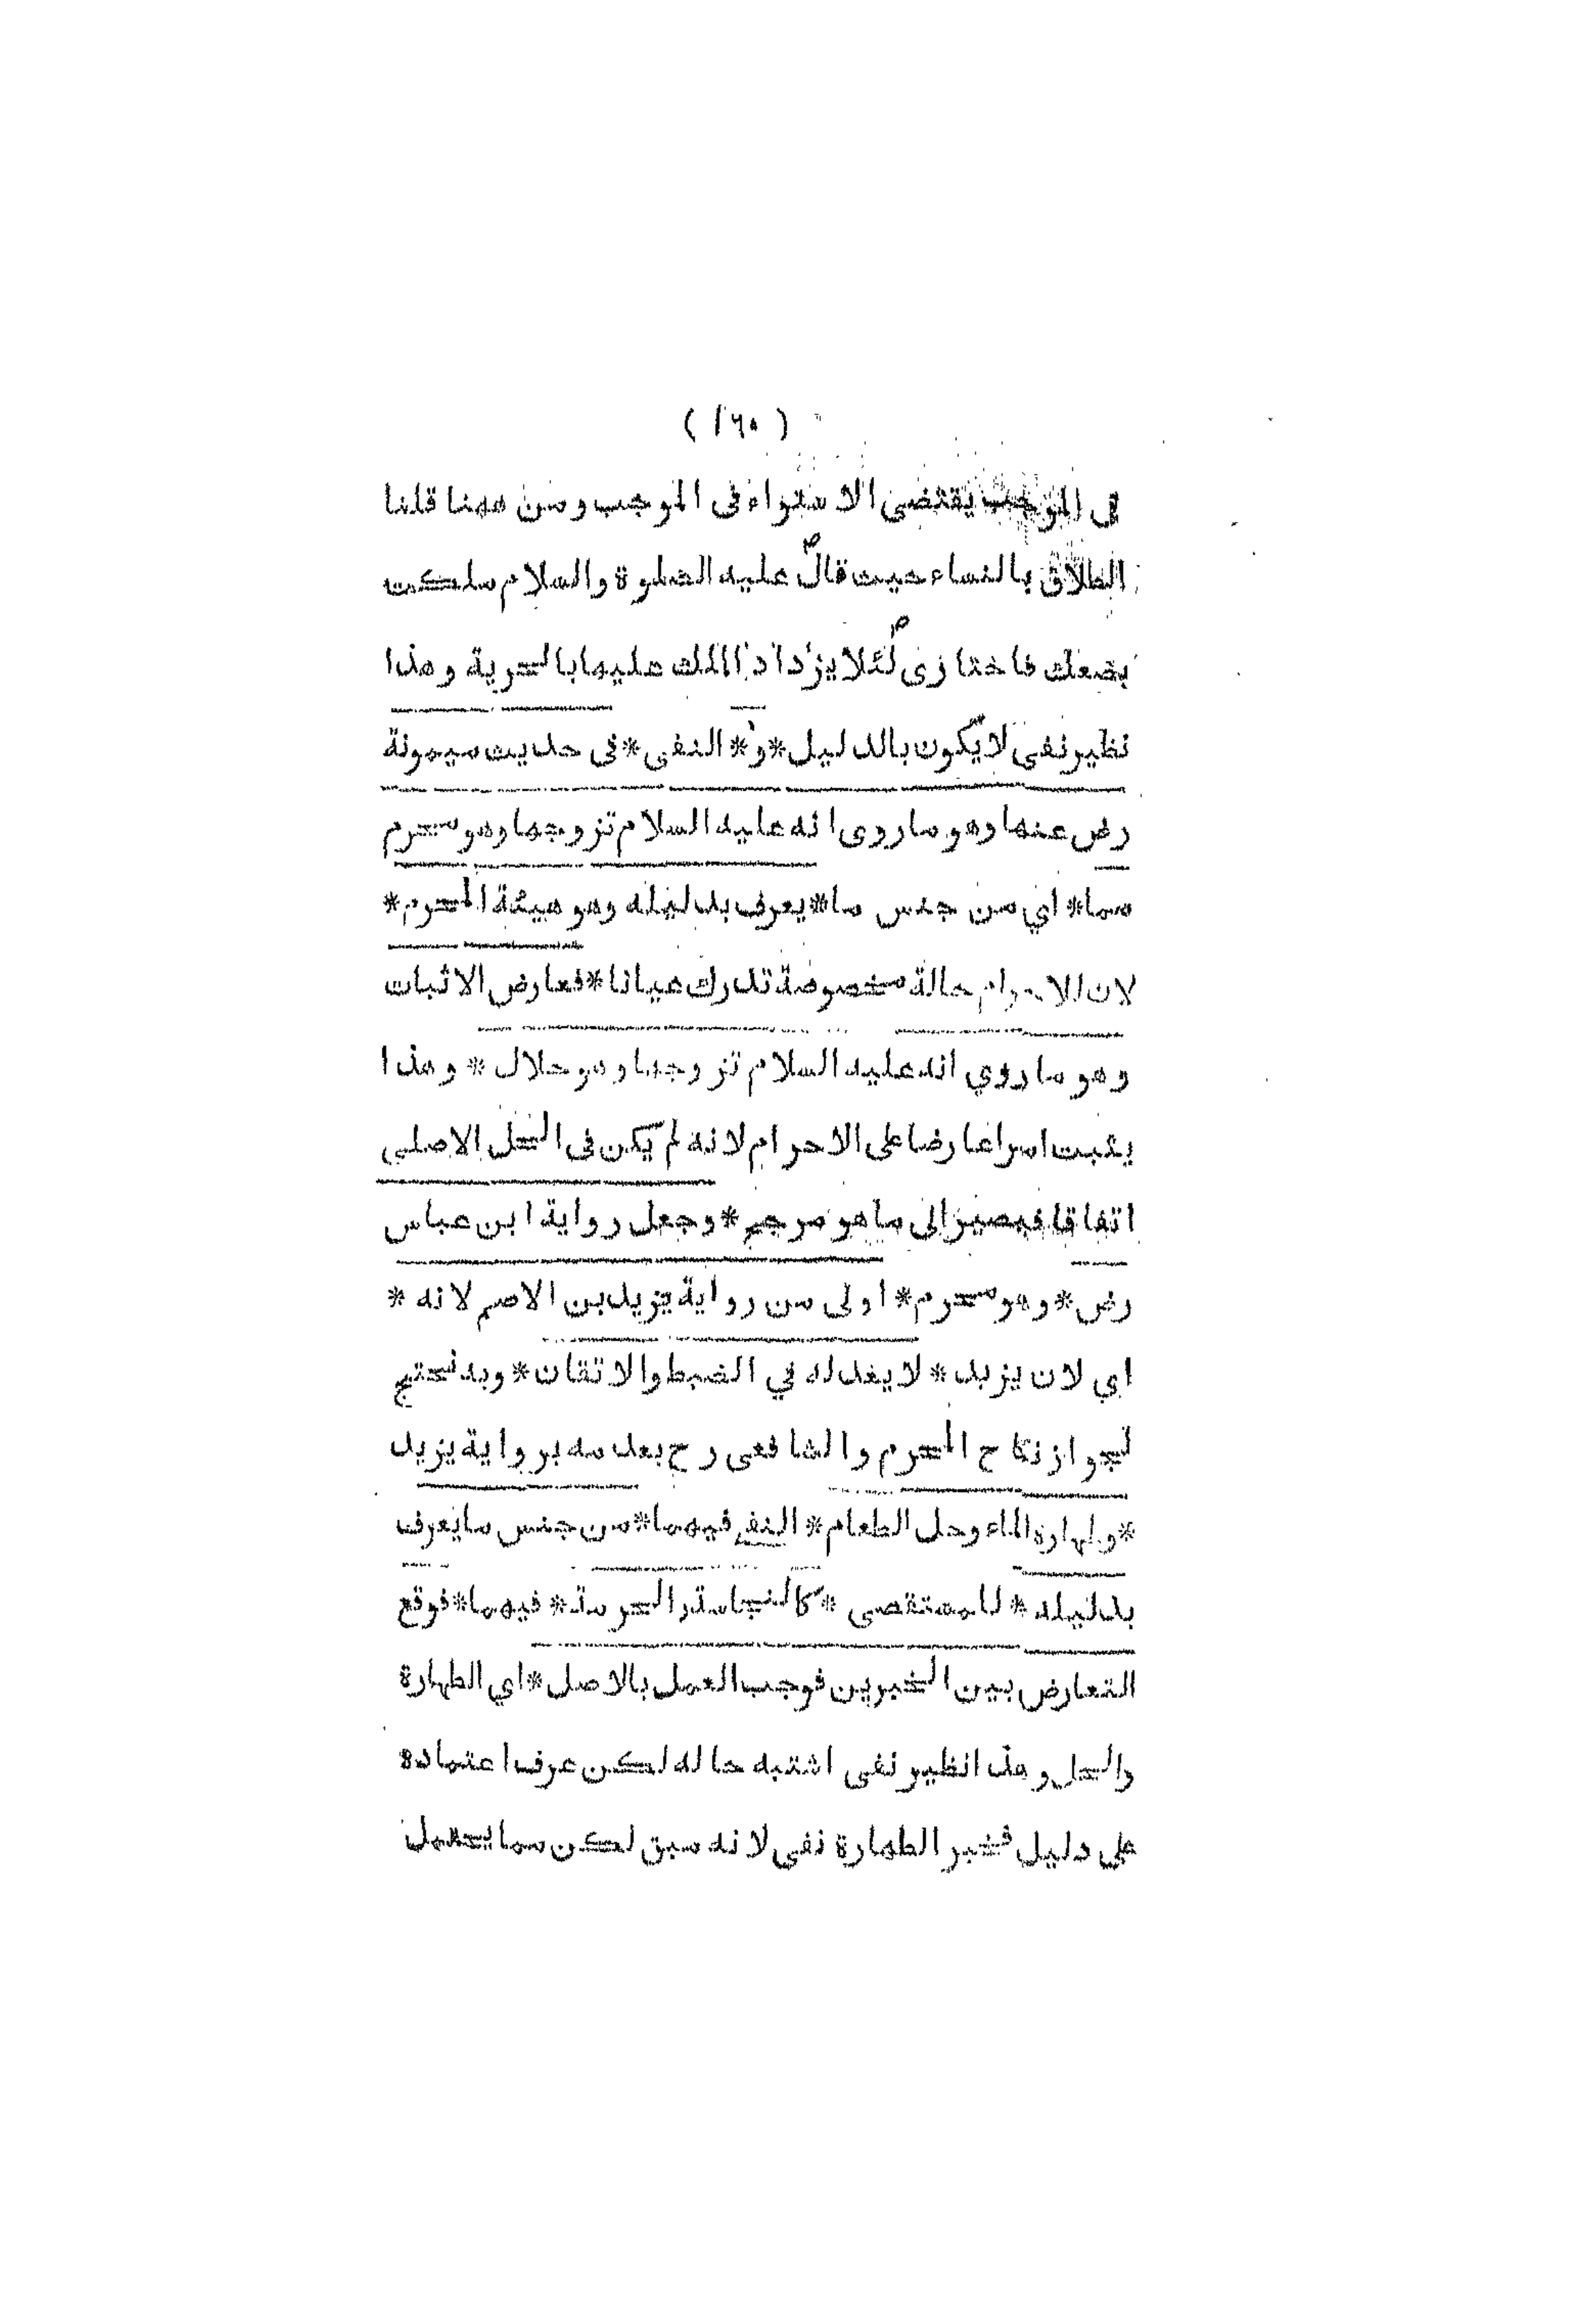 ( ١٦٥ )
فى الموجب يقتضى الاستواء فى الموجب ومن ههنا قلنا
الطلاق بالنساء حيث قال عليه الصلوة والسلام ملكت
بضعك فاختارى لئلا يزداد الملك عليها بالحرية وهذا
نظير نفى لا يكون بالدليل * و * النفى * فى حديث ميمونة
رض عنها وهو ما روى انه عليه السلام تزوجها وهو محرم
مما * اي من جنس ما * يعرف بدليله وهو هيئة المحرم *
لان للاحرام حالة مخصوصة تدرك عيانا * فعارض الاثبات
وهو ما روي انه عليه السلام تزوجها وهو حلال * وهذا
يثبت امرا عارضا على الاحرام لانه لم يكن فى الحل الاصلي
اتفاقا فيصير الى ما هو مرجح * وجعل رواية ابن عباس
رض * وهو محرم * اولى من رواية يزيد بن الاصم لانه *
اي لان يزيد * لا يعدله في الضبط والاتقان * وبه نحتج
لجواز نكاح المحرم والشافعى رح بعدمه برواية يزيد
* وطهارة الماء وحل الطعام * النفى فيهما * من جنس ما يعرف
بدليله * للمستقصى * كالنجاسة والحرمة * فيهما * فوقع
التعارض بين الخبرين فوجب العمل بالاصل * اي الطهارة
والحل وهذا نظير نفى اشتبه حاله لكن عرف اعتماده
على دليل فخبر الطهارة نفى لانه سبق لكن مما يحتمل